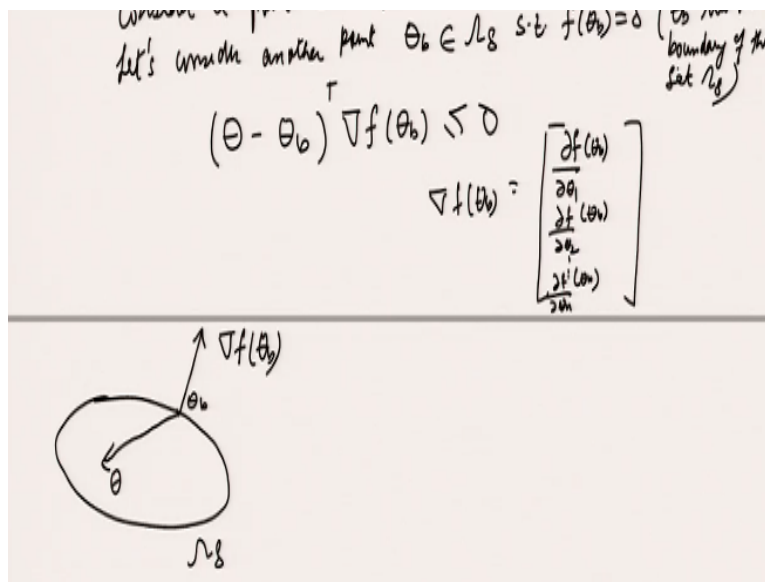 Consider a
Let's consider another point θb ∈ Ωδ s.t f(θb) = δ (
boundary of the
set Ωδ)
(θ - θb)ᵀ ∇f(θb) ≤ 0
∇f(θb) = [∂f(θb)/∂θ1
∂f(θb)/∂θ2
⋮
∂f(θb)/∂θn]
∇f(θb)
θb
θ
Ωδ